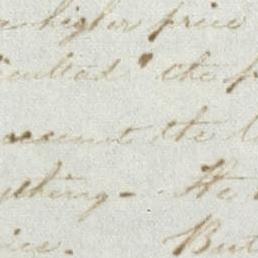 a higher price
iculted " the p
account the l
ything - He
ice. But